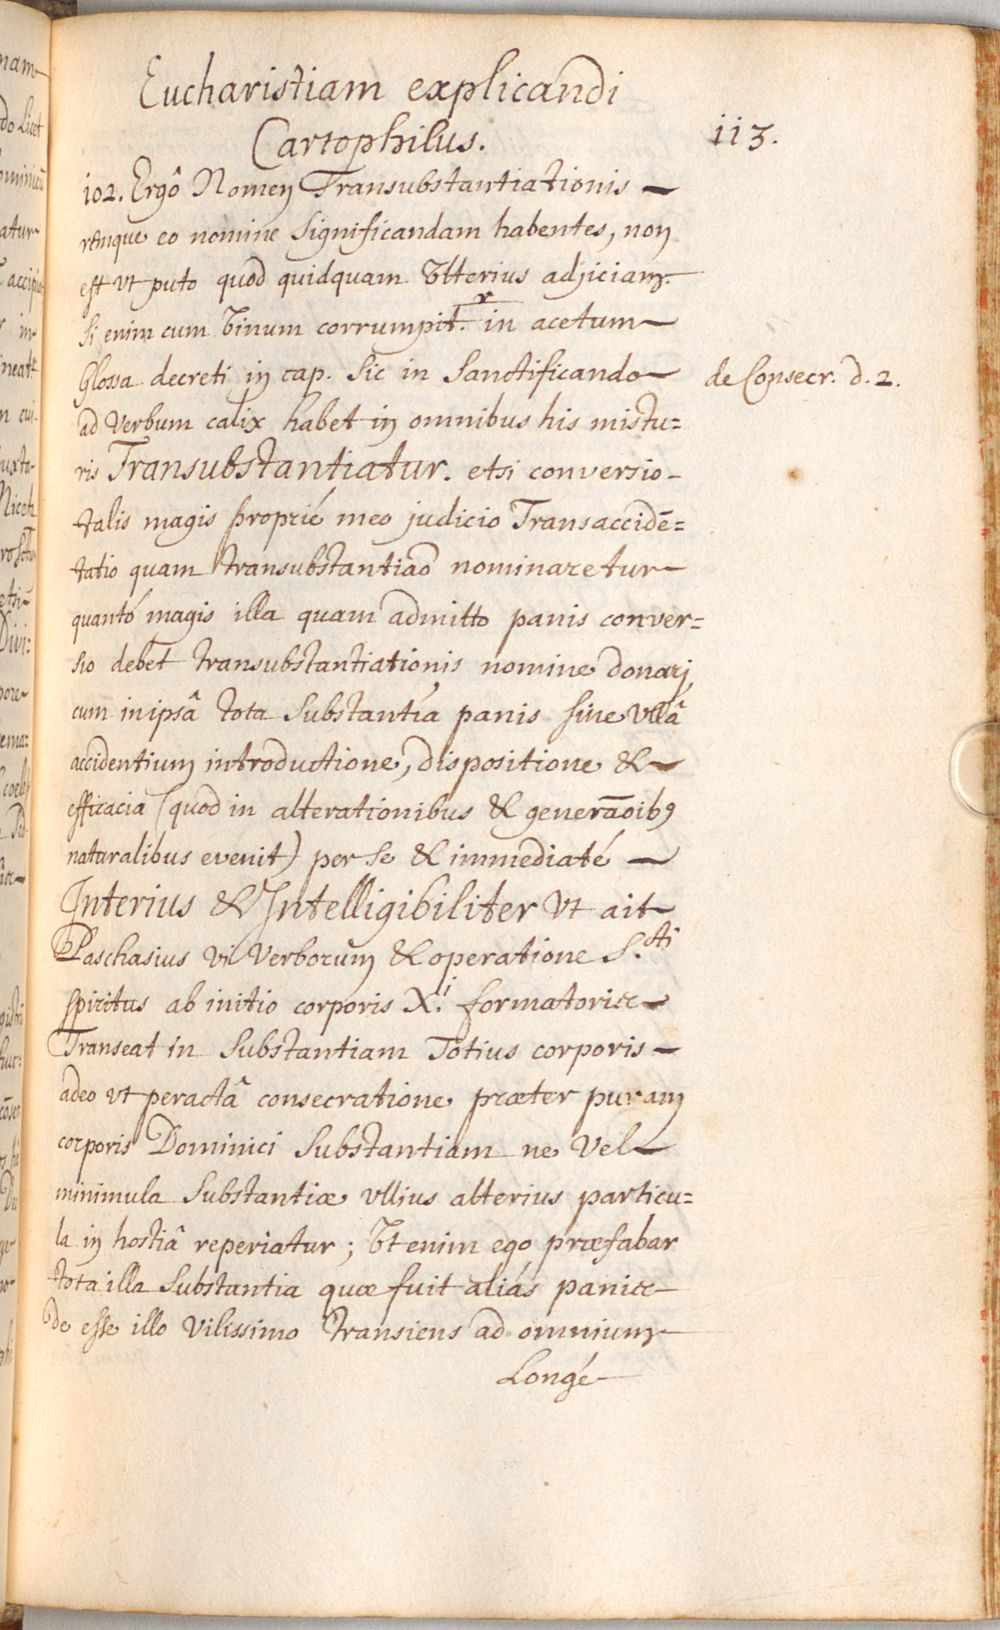 Eucharistiam explicandi
Cartophilus.
113.
102. Ergô Nomen Transubstantiationis
remque eo nomine significandam habentes, non
est vt puto quod quidquam Vlterius adjiciam.
Si enim cum Vinum corrumpit.r in acetum
Glossa decreti in cap. Sic in Sanctificando
de Consecr. d. 2.
ad Verbum calix habet in omnibus his mistu=
ris Transubstantiatur. etsi conversio
talis magis proprié meo judicio Transaccidē=
tatio quam transubstantiaō nominaretur
quantó magis illa quam admitto panis conver=
sio debet transubstantiationis nomine donari,
cum in ipsâ tota Substantia panis sine Vllâ
accidentium introductione, dispositione &
efficacia (quod in alterationibus & generāoib9
naturalibus evenit) per se & immediaté
Interius & Intelligibiliter Vt ait
Paschasius Vi Verborum & operatione S.cti
spiritus ab initio corporis X.i formatoris
Transeat in Substantiam Totius corporis
adeo vt peractâ consecratione præter puram
corporis Dominici Substantiam ne Vel
minimula Substantiæ vllius alterius particu=
la in hostiâ reperiatur; Vt enim ego præfabar
tota illa Substantia quæ fuit aliás panis
de esse illo Vilissimo transiens ad omnium
Longé